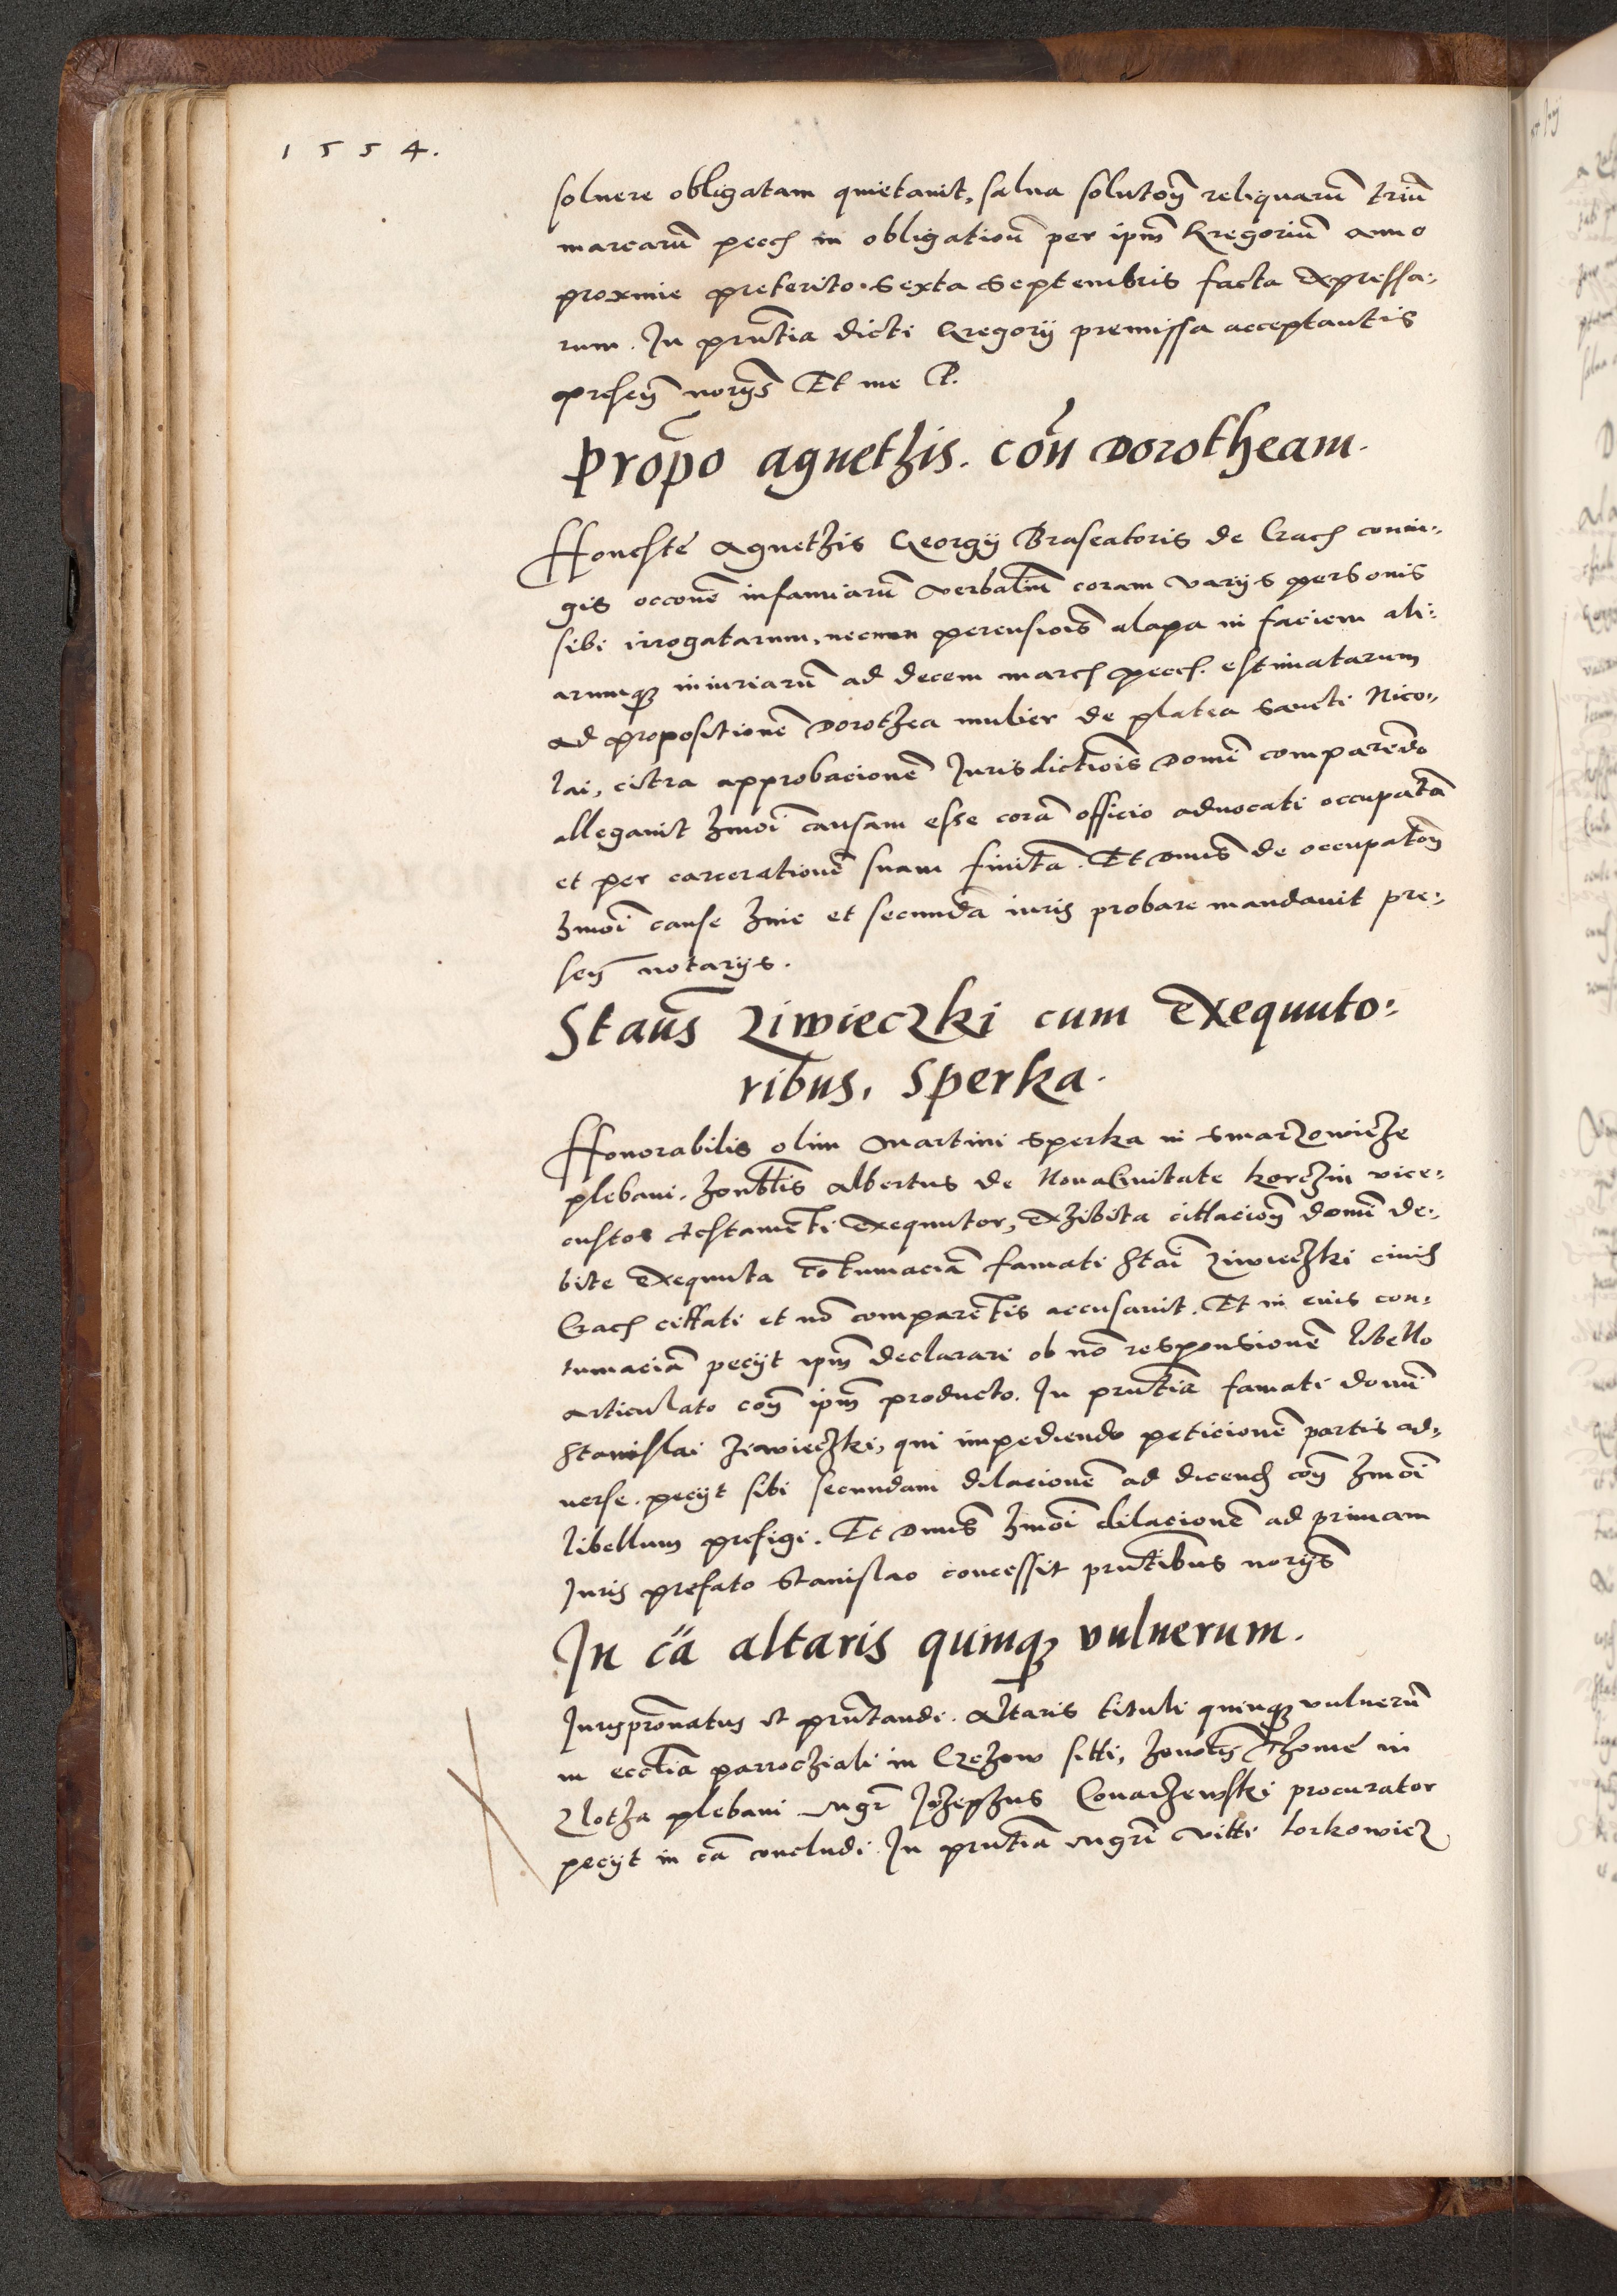 1554.
soluere obligatam quietauit, salua solutoӯ reliquarū triū
marcarū pecc in obligationē per ipm̄ Gregoriū anno
proxime preterito sexta Septembris facta expressa:
rum. In prn̄tia dicti Gregorij premissa acceptantis
preseñ norijs Et me P.
Propo Agnethis. con̄ Dorotheam.
Honesté Agnethis Georgij Braseatoris de Crac coniu:
gis occonē infamiarū verbaliū coram varijs personis
sibi irrogatarum, necnon percusiois alapa in faciem ali:
arumq; iniuriarū ad decem marc pecc. estimatarum
ad propositionē Dorothea mulier de platea Sancti Nico:
lai, citra approbacionē Jurisdictiois Domī comparendo
allegauit hmoī causam esse corā officio aduocati occupatā
et per carcerationē suam finitā. Et Dnus de occupatoӯ
hmoī cause hinc et secundā iuris probare mandauit pre:
señ notarijs.
Staūs Ziwieczki cum Exequuto:
ribus, Sperka.
Honorabilis olim Martini Sperka in Smarzowicze
plebani. honbtis Albertus de NouaCiuitate Korczin vice:
custos testamēti Exequutor, exhibita cittacioӯ Domī de:
bite exequuta cōtumaciā famati Staī Ziwieczki ciuis
Crac cittati et nō comparētis accusauit. Et in eius con:
tumaciā pecijt ipm̄ declarari ob nō responsionē libello
articulato coӯ ipm̄ producto. In prn̄tia famati Domī
Stanislai Ziwieczki, qui impediendo peticionē partis ad:
uerse. pecijt sibi secundam dilacionē ad dicend coӯ hmoī
libellum prefigi. Et Dnus hmoī dilacionē ad primam
Juris prefato Stanislao concessit prn̄tibus norijs
In cā altaris quinq; vulnerum.
Jurispronatus et prn̄tandi. Altaris tituli quinq; vulnerū
in ecctia parrochiali in Czchow sitti, honotis Thomé in
Zlotha plebani Mgr Johephus Conarzewski procurator
pecijt in cā concludi. In prn̄tia Mgri Vitti Lorkowicz